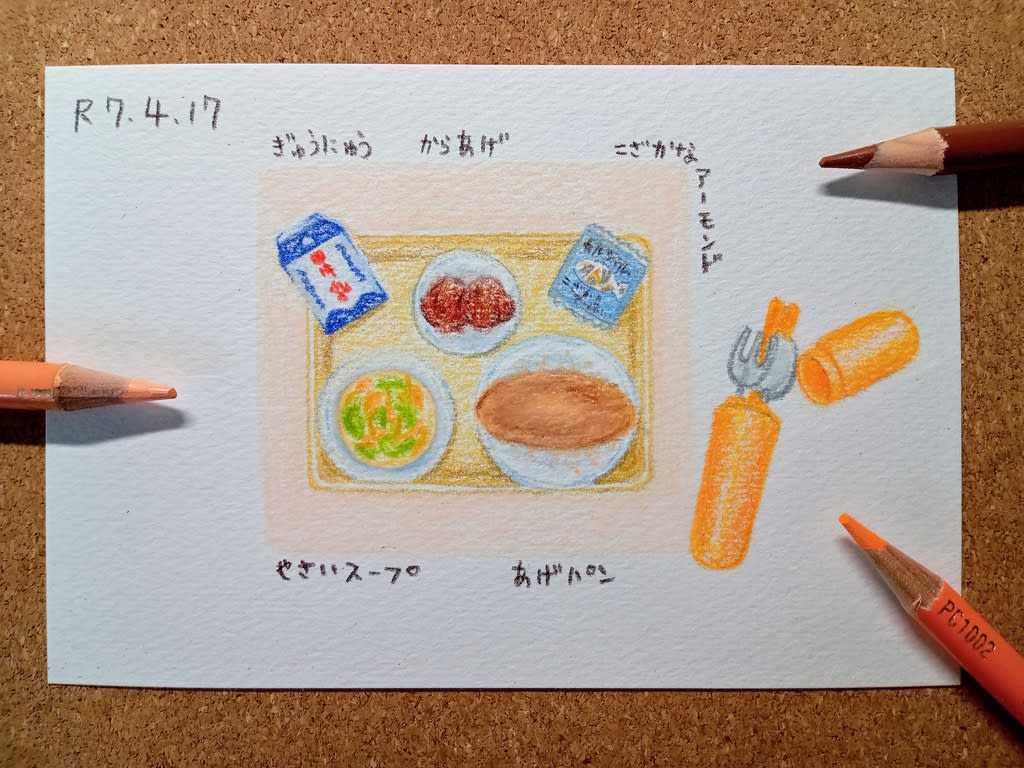 R7.4.17
ぎゅうにゅう
からあげ
こざかな
アーモンド
カルシウム
こざかな
やさいスープ
あげパン
PC1002